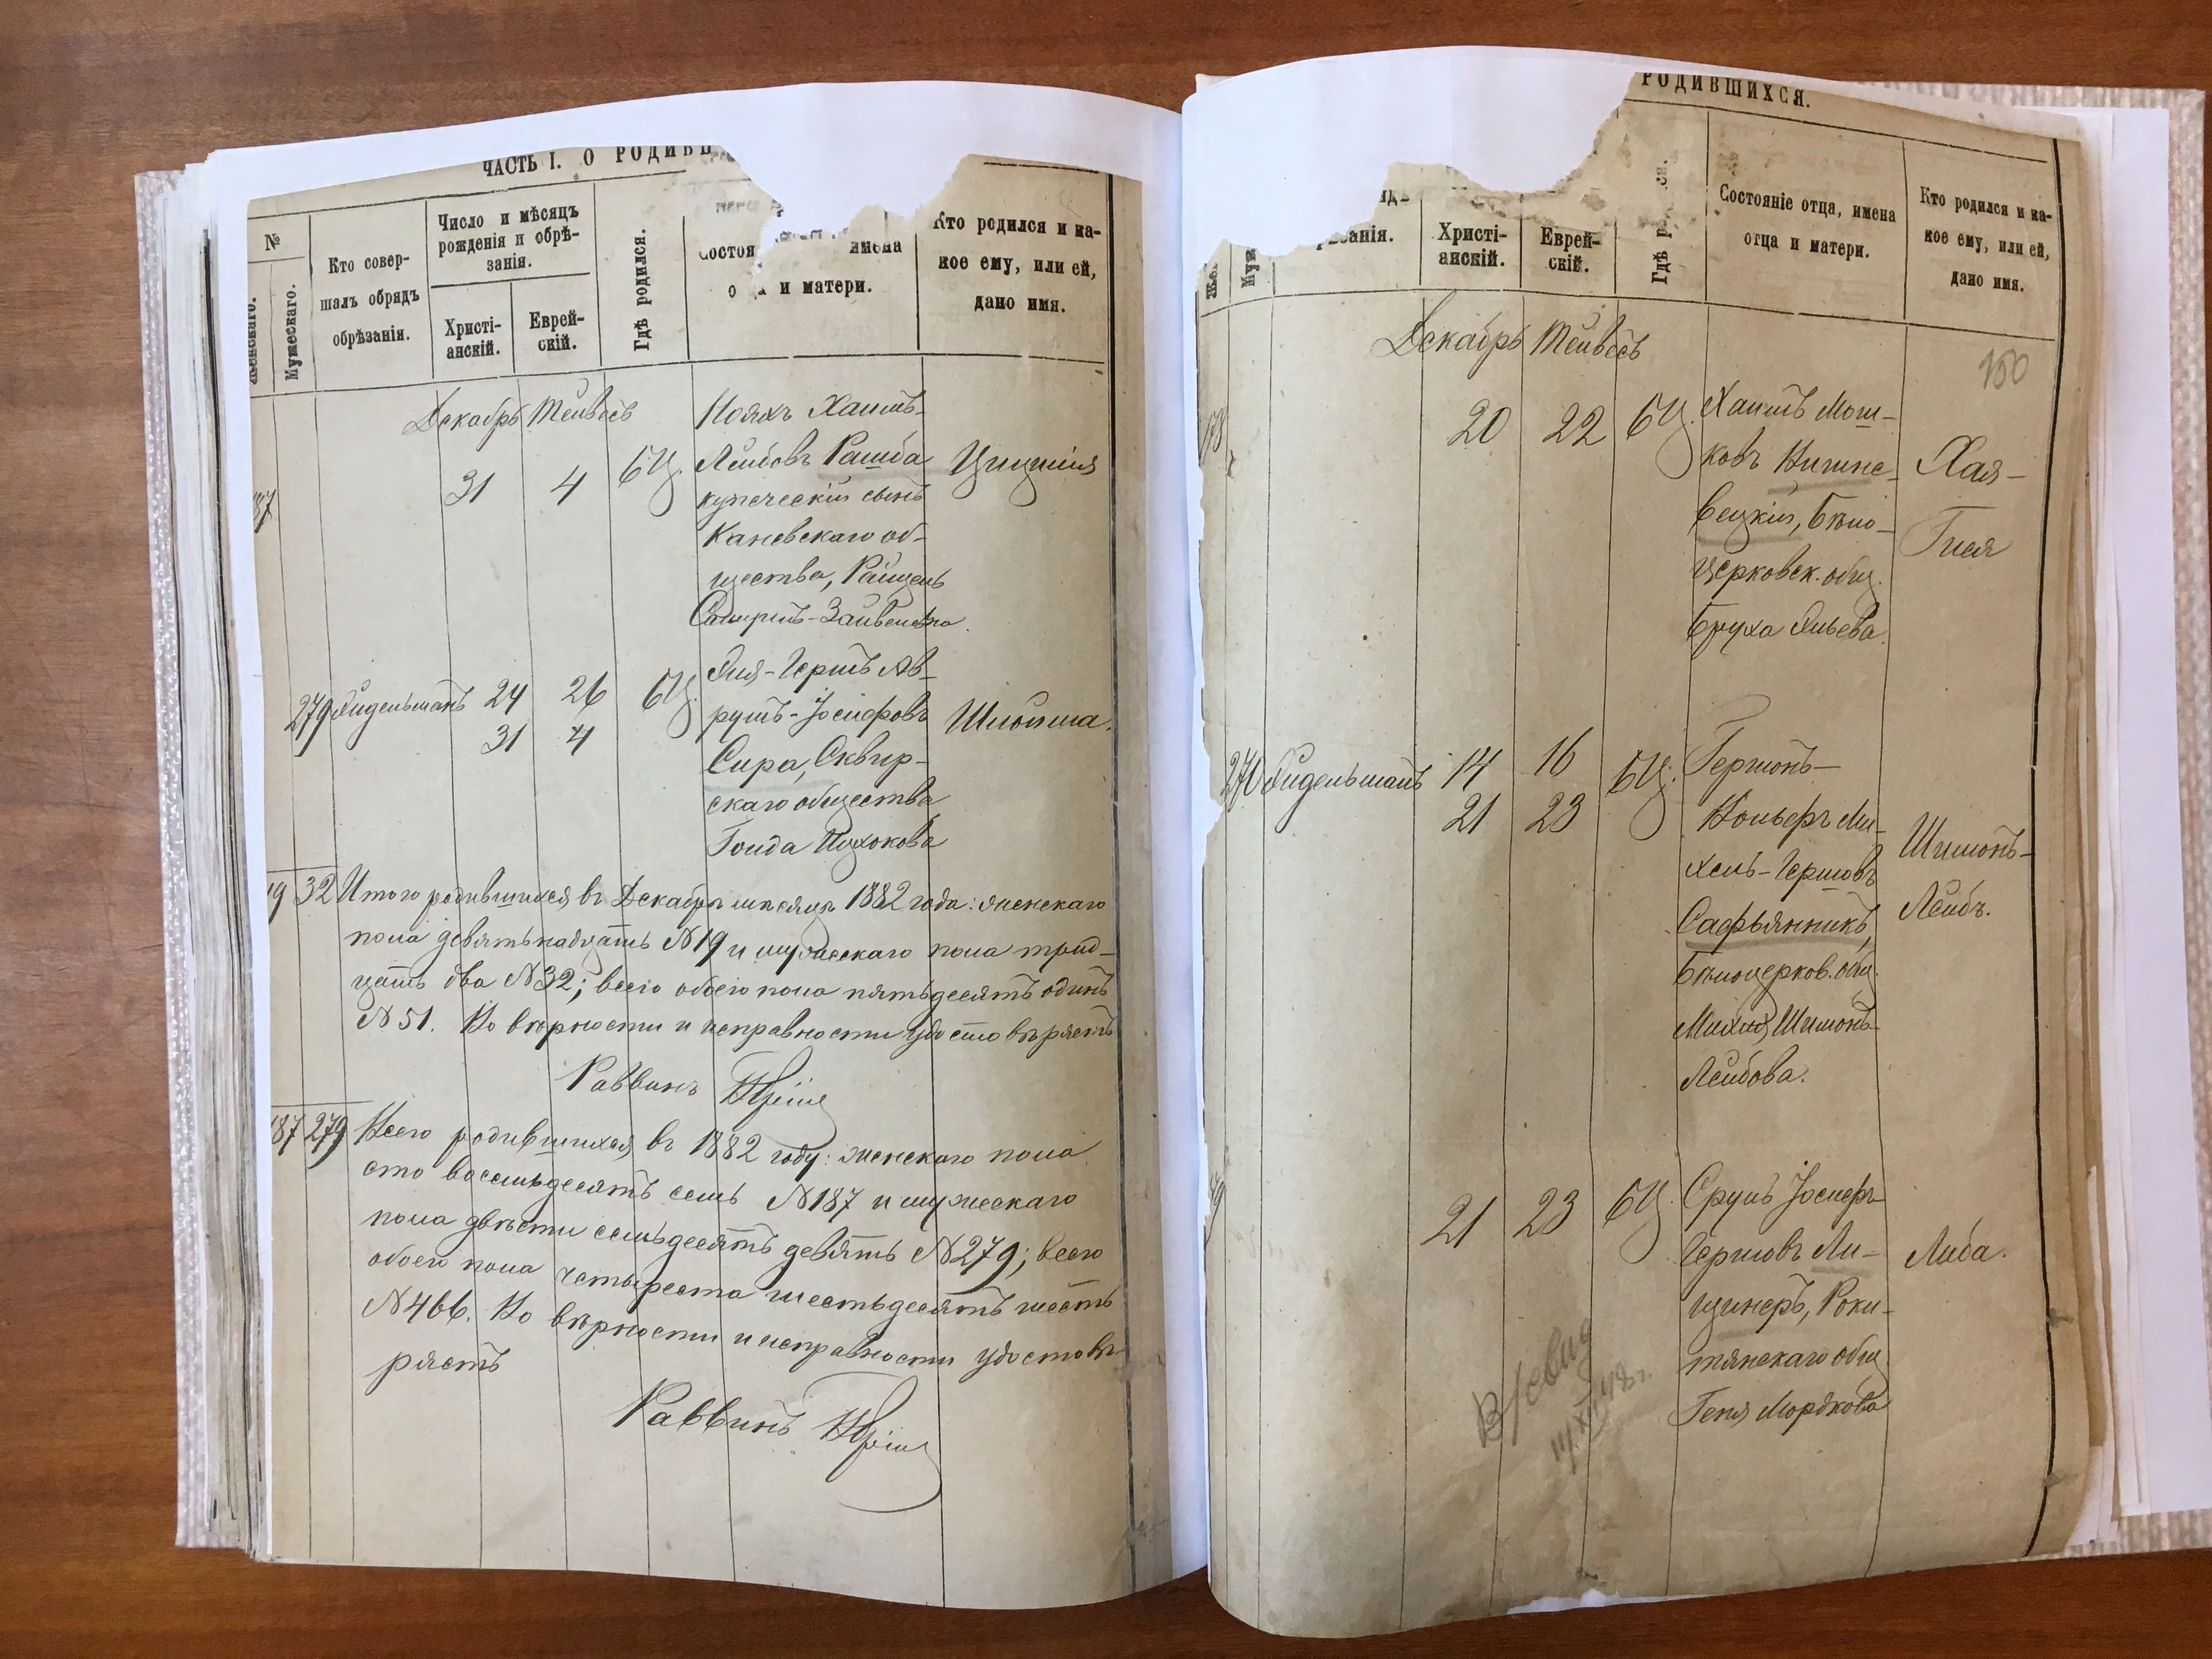 ЧАСТЬ I. О РОДИВ
№
Женскаго.
Мужескаго.
Кто совер-
шалъ обрядъ
обрѣзанія.
Число и мѣсяцъ
рожденія и обрѣ-
занія.
Христі-
анскій.
Еврей-
скій.
Гдѣ родился.
Состоя имена
о а и матери.
Кто родился и ка-
кое ему, или ей,
дано имя.
Декабрь Тейвесь
87 31 4 БЦ.
Нояхъ Хаимъ-
Лейбовъ Рашба
купеческій сынъ
Каневскаго об-
щества, Райцель
279 Эйдельманъ 24 26 БЦ.
31 4
Эля-Герш Ав-
румъ-Іосифовъ
Сира, Сквир-
скаго общества
Голда Ицхокова
Шлойма.
19 32 Итого родившихся въ Декабрѣ мѣсяцѣ 1882 года: женскаго
пола девятьнадцать №19 и мужескаго пола трид-
цать два №32; всего обоего пола пятьдесятъ одинъ
№51. Во вѣрности и исправности удостовѣряетъ
Раввинъ
187 279 Всего родившихся въ 1882 году: женскаго пола
сто восемьдесятъ семь №187 и мужескаго
пола двѣсти семьдесятъ девять №279; всего
обоего пола четыреста шестьдесятъ шесть
№466. Во вѣрности и исправности удостовѣ-
ряетъ
Раввинъ
РОДИВШИХСЯ.
Христі-
анскій.
Еврей-
скій.
Состояніе отца, имена
отца и матери.
Кто родился и ка-
кое ему, или ей,
дано имя.
150
Декабрь Тейвесь
20 22 БЦ.
Хаимъ Мош-
ковъ Вишне-
вецкій, Бѣло-
церковск. общ.
Бруха Эльева.
Хая-
Гися
270 Эйдельманъ 14 16 БЦ.
21 23
Гершонъ-
Вольфъ Ми-
хель-Гершовъ
Сафьянникъ,
Бѣлоцерков. общ.
Махля Шимонъ-
Лейбова.
Шимонъ-
Лейбъ.
79 21 23 БЦ.
Сруль Іосифъ-
Гершовъ Ли-
щинеръ, Роки-
тянскаго общ.
Геня Мордкова
Либа.